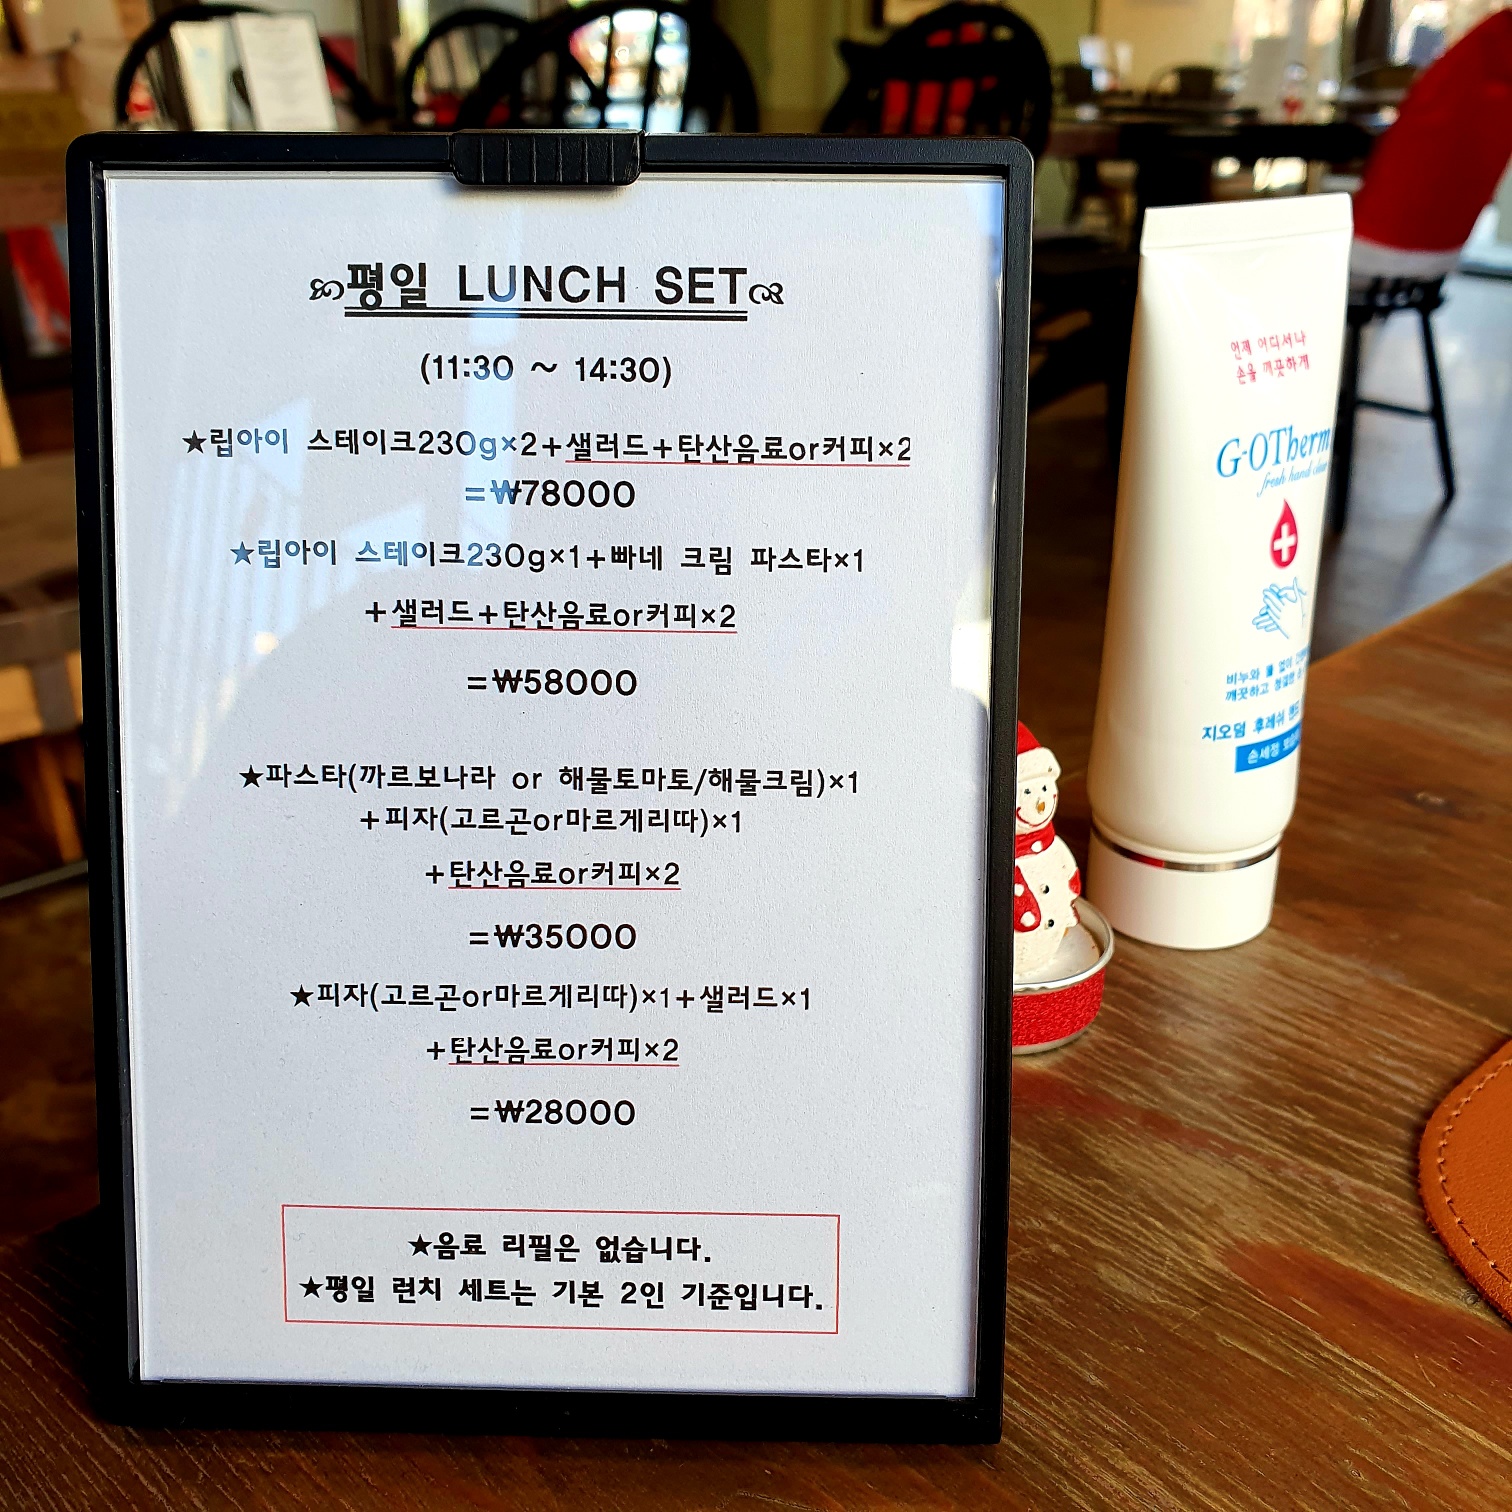 평일 LUNCH SET
(11:30 ~ 14:30)
★립아이 스테이크230g×2+샐러드+탄산음료or커피×2
=₩78000
★립아이 스테이크230g×1+빠네 크림 파스타×1
+샐러드+탄산음료or커피×2
=₩58000
★파스타(까르보나라 or 해물토마토/해물크림)×1
+피자(고르곤or마르게리따)×1
+탄산음료or커피×2
=₩35000
★피자(고르곤or마르게리따)×1+샐러드×1
+탄산음료or커피×2
=₩28000
★음료 리필은 없습니다.
★평일 런치 세트는 기본 2인 기준입니다.
언제 어디서나
손을 깨끗하게
G-OTherm
fresh hand
비누와 물 없이
깨끗하고
지오덤 후레쉬 핸드
손세정